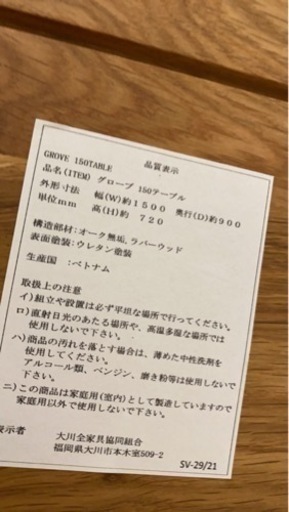 品質表示
GROVE 150TABLE
品名(ITEM) グローブ 150テーブル
外形寸法 幅(W)約1500 奥行(D)約900
単位mm 高(H)約 720
構造部材:オーク無垢,ラバーウッド
表面塗装:ウレタン塗装
生産国 :ベトナム
取扱上の注意
イ)組立や設置は必ず平坦な場所で行ってください。
ロ)直射日光のあたる場所や、高温多湿な場所では
使用しないで下さい。
ハ)商品の汚れを落とす場合は、薄めた中性洗剤を
使用してください。
アルコール類、ベンジン、磨き粉等は使用しないで
下さい。
ニ)この商品は家庭用(室内)として製造していますので
家庭用以外で使用しないで下さい。
表示者 大川全家具協同組合
福岡県大川市本木室509-2
SV-29/21